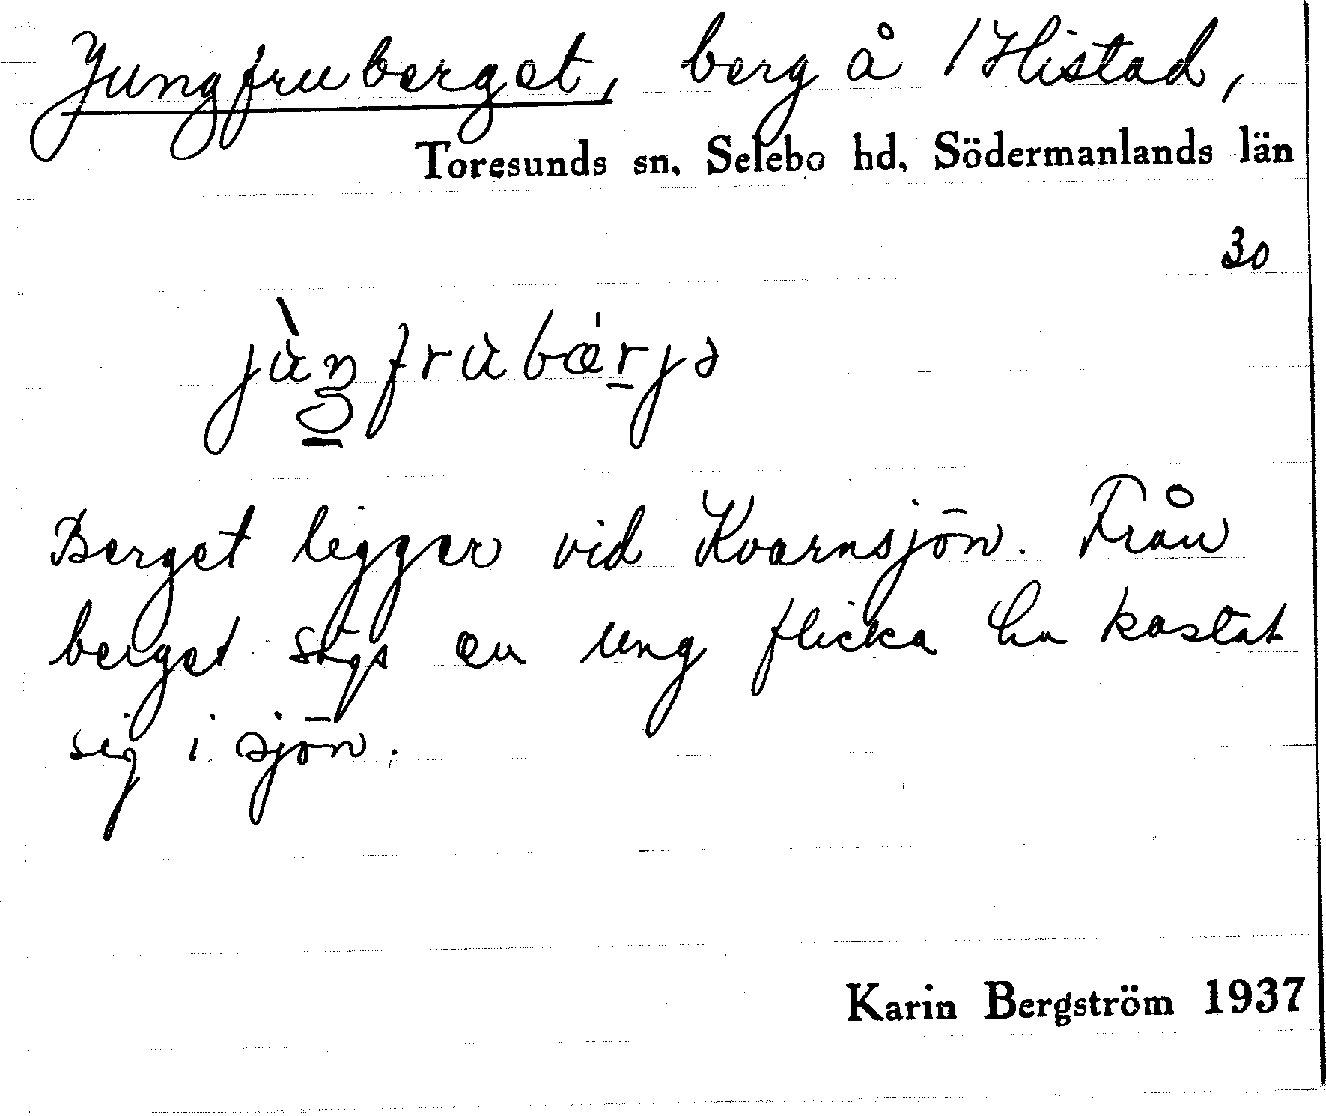 Jungfruberget, berg å Histad,
Toresunds sn, Selebo hd, Södermanlands län
30
jùŋfrubærjə
Berget ligger vid Kvarnsjön. Från
berget sägs en ung flicka ha kastat
sig i sjön.
Karin Bergström 1937